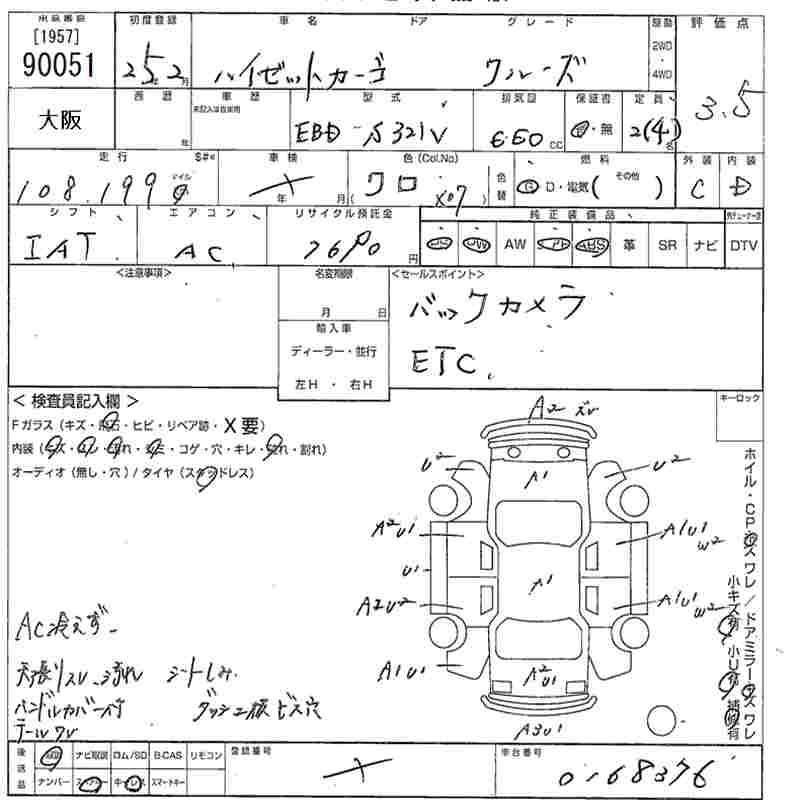 [1957]
90051
初度登録
25年2月
車名 ドア グレード
ハイゼットカーゴ クルーズ
駆動
2WD
・
4WD
評価点
3.5
大阪
西暦
年
車歴
未記入は自家用
型式
EBD-S321V
排気量
660 CC
保証書
有・無
定員
2(4)名
走行 $#* マイル
108.199
車検
年 月
色(Col.No)
クロ
(X07)
色替
燃料
G D・電気( その他 )
外装
C
内装
D
シフト
IAT
エアコン
AC
リサイクル預託金
7690円
純正装備品
PS PW AW ABS 革 SR ナビ DTV
<注意事項>
名変期限
月 日
輸入車
ディーラー・並行
左H・右H
<セールスポイント>
バックカメラ
ETC
<検査員記入欄>
Fガラス(キズ・飛石・ヒビ・リペア跡・X要)
内装(キズ・スレ・汚れ・シミ・コゲ・穴・キレ・破れ・割れ)
オーディオ(無し・穴)/タイヤ(スタッドレス)
キーロック
A2 ズレ
A1
U2
U2
A2 U1
A1U1
W2
U1
A1
A2U2
A1U1
W2
A1U1
A2
U1
A3U1
ホイル・CPキズワレ/ドアミラーキズワレ
小キズ有 小U有 補修有
AC冷えず
天張りスレ、汚れ シートしみ
ハンドルカバー付 ダッシュ板ビス穴
テールワレ
後送品
ナビ取説 ロム/SD B-CAS リモコン
ナンバー スペアキー キーレス スマートキー
登録番号
車台番号
0168376